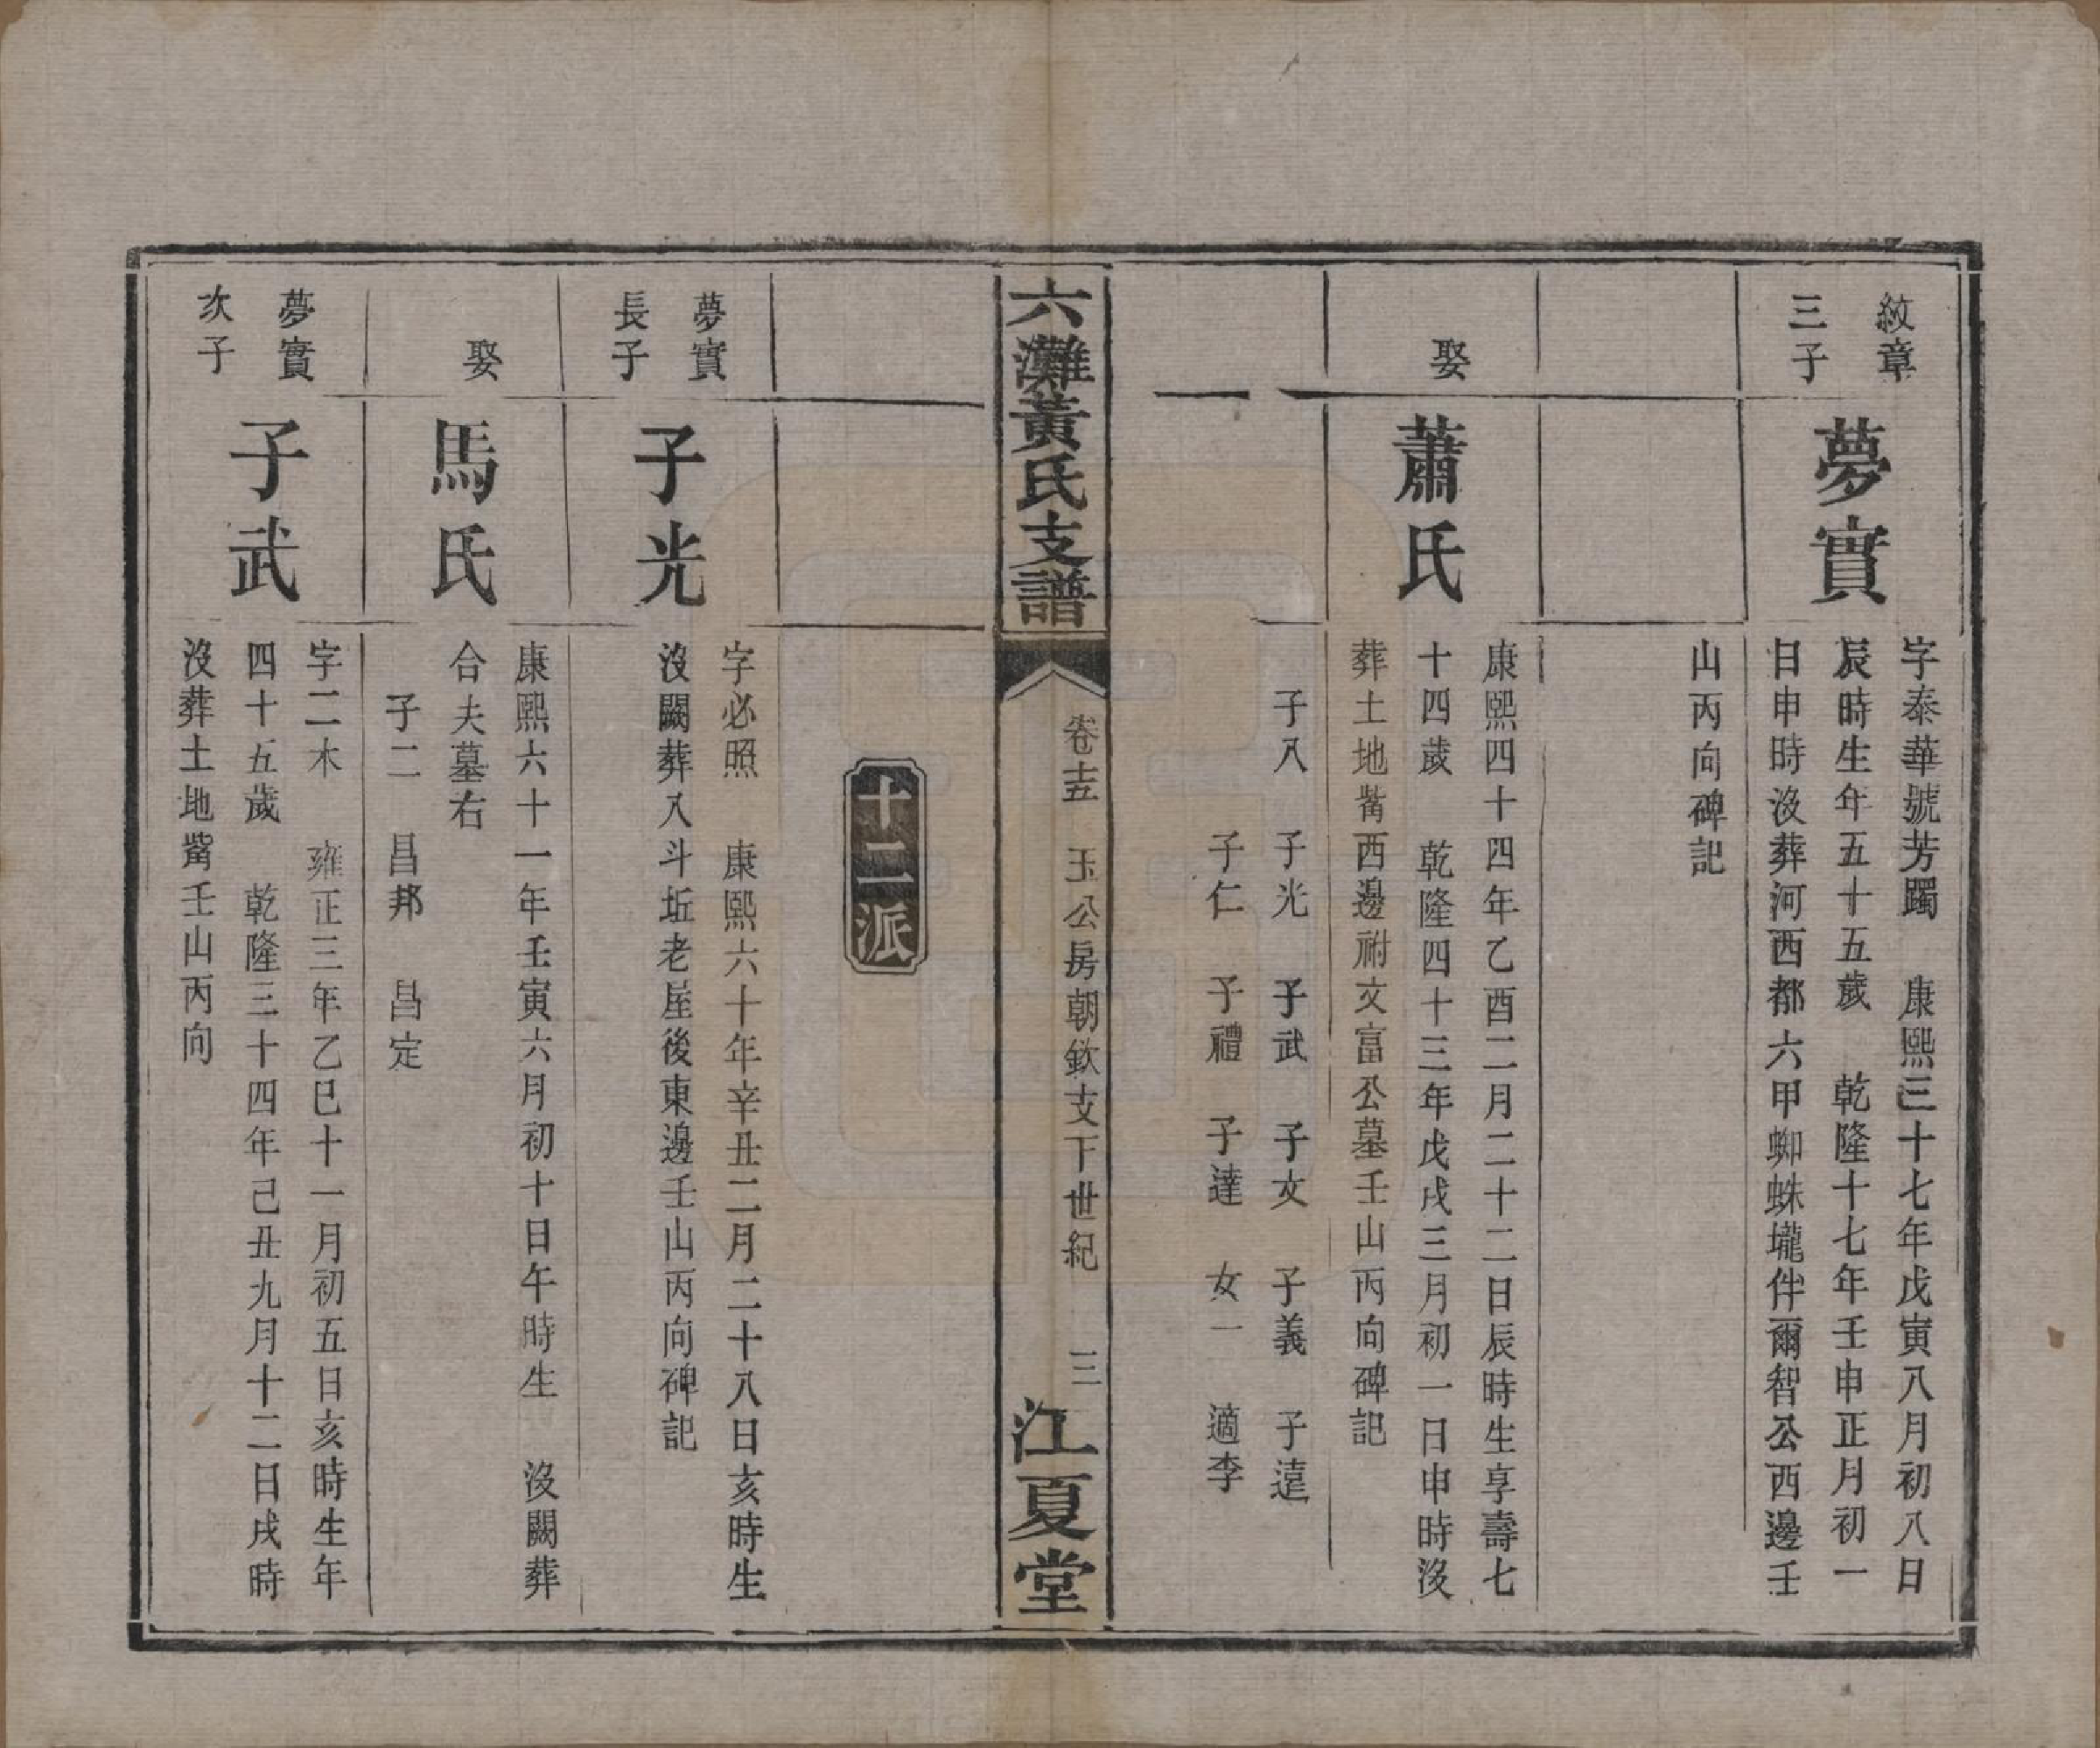 紋章
三子
夢實
字泰華號芳躅　康熙三十七年戊寅八月初八日
辰時生年五十五歲　乾隆十七年壬申正月初一
日申時沒葬河西都六甲蜘蛛壠伴爾智公西邊壬
山丙向碑記
娶
蕭氏
康熙四十四年乙酉二月二十二日辰時生享壽七
十四歲　乾隆四十三年戊戌三月初一日申時沒
葬土地觜西邊祔文富公墓壬山丙向碑記
子八　子光　子武　子文　子義　子遠
子仁　子禮　子達　女一　適李
六灘黃氏支譜
卷十五　玉公房朝欽支下世紀　三
江夏堂
十二派
夢實
長子
子光
字必照　康熙六十年辛丑二月二十八日亥時生
沒闕葬八斗坵老屋後東邊壬山丙向碑記
娶
馬氏
康熙六十一年壬寅六月初十日午時生　沒闕葬
合夫墓右
子二　昌邦　昌定
夢實
次子
子武
字二木　雍正三年乙巳十一月初五日亥時生年
四十五歲　乾隆三十四年己丑九月十二日戌時
沒葬土地觜壬山丙向